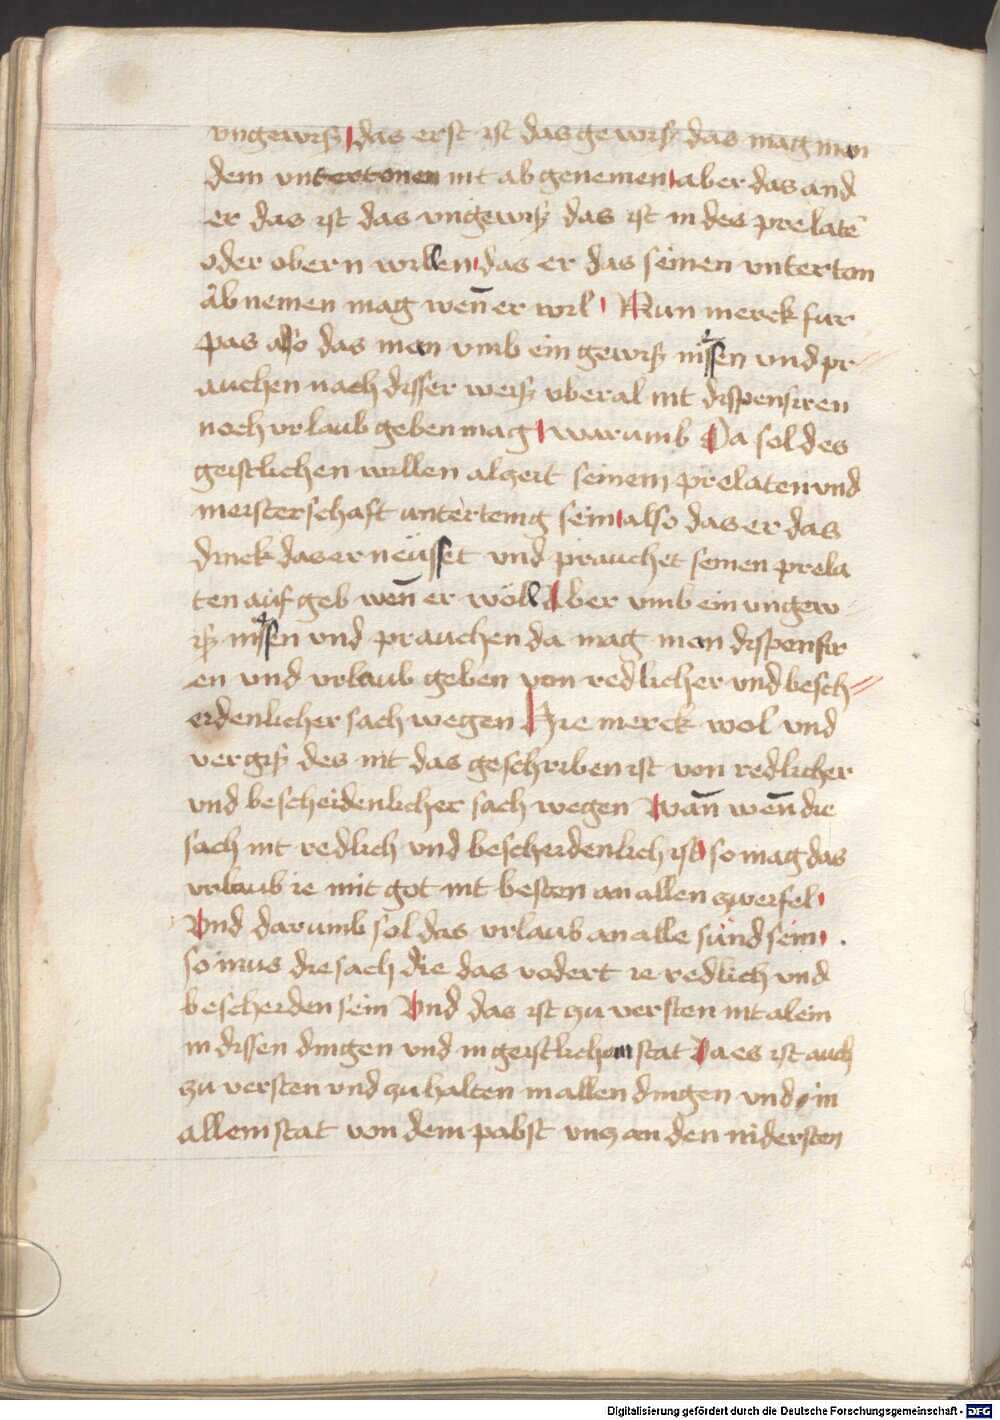 ungewiß das erst ist das gewiß das mag man
dem untertonen nit abgenemen aber das and
er das ist das ungewiß das ist in des prelatē
oder obern willen das er das seinen unterton
abnemen mag weñ er wil Nun merck fur
pas also das man umb ein gewiß nissen und pr
auchen nach disser weiß uberal nit dispensiren
noch urlaub geben mag warumb Da sol des
geistlichen willen alzeit seinem prelaten und
meisterschaft untertenig sein also das er das
dinck das er neüsset und prauchet seinen prela
ten auf geb weñ er wöll Aber umb ein ungew
iß nissen und prauchen da mag man dispensir
en und urlaub geben von redlicher und besch
eidenlicher sach wegen Hie merck wol und
vergiß des nit das geschriben ist von redlicher
und bescheidenlicher sach wegen Wañ weñ die
sach nit redlich und bescheidenlich ist so mag das
urlaub ie mit got nit besten an allen zweifel
Und darumb sol das urlaub an alle sünd sein
so mus die sach die das vodert ie redlich und
bescheiden sein Und das ist zu versten nit alein
in dissen dingen und in geistlichem stat Ja es ist auch
zu versten und zu halten in allen dingen und in
allem stat von dem pabst unz an den nidersten
Digitalisierung gefördert durch die Deutsche Forschungsgemeinschaft - DFG